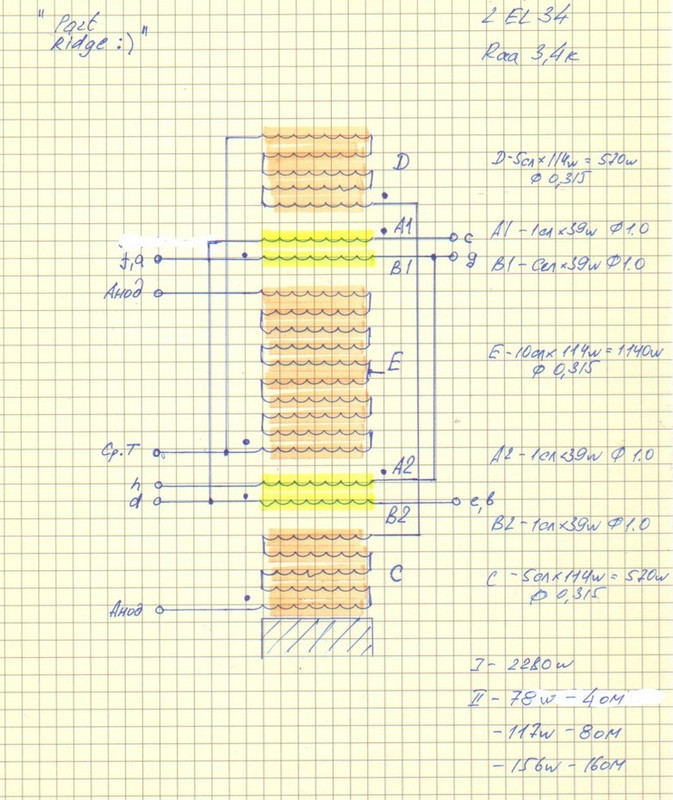 "Part
Ridge :)"
2 EL 34
Raa 3,4к
D
D-5сл×114w = 570w
Ф 0,315
A1
c
A1 - 1сл×39w Ф 1.0
f,a
B1
g
B1 - Cсл×39w Ф 1.0
Анод
E
E - 10сл×114w = 1140w
Ф 0,315
Ср.Т
A2
A2 - 1сл×39w Ф 1.0
h
d
e,в
B2
B2 - 1сл×39w Ф 1.0
C
C - 5сл×114w = 570w
Ф 0,315
Анод
I - 2280w
II - 78w - 4ом
- 117w - 8ом
- 156w - 16ом